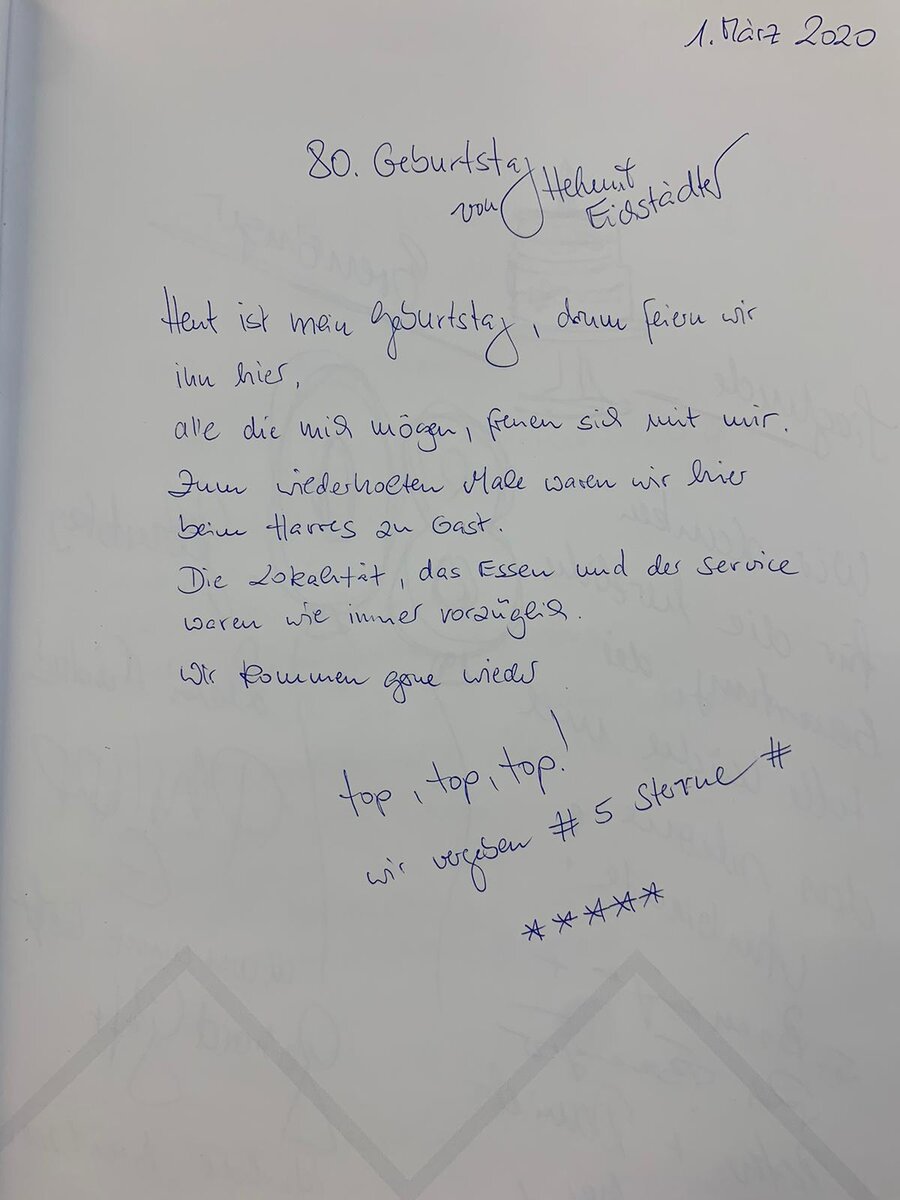 1. März 2020
80. Geburtstag
von Helmut
Eichstädter
Heut ist mein Geburtstag, drum feiern wir
ihn hier,
alle die mich mögen, freuen sich mit mir.
Zum wiederholten Male waren wir hier
beim Harres zu Gast.
Die Lokalität, das Essen und der Service
waren wie immer vorzüglich.
Wir kommen gerne wieder
top, top, top!
wir vergeben # 5 Sterne #
*****